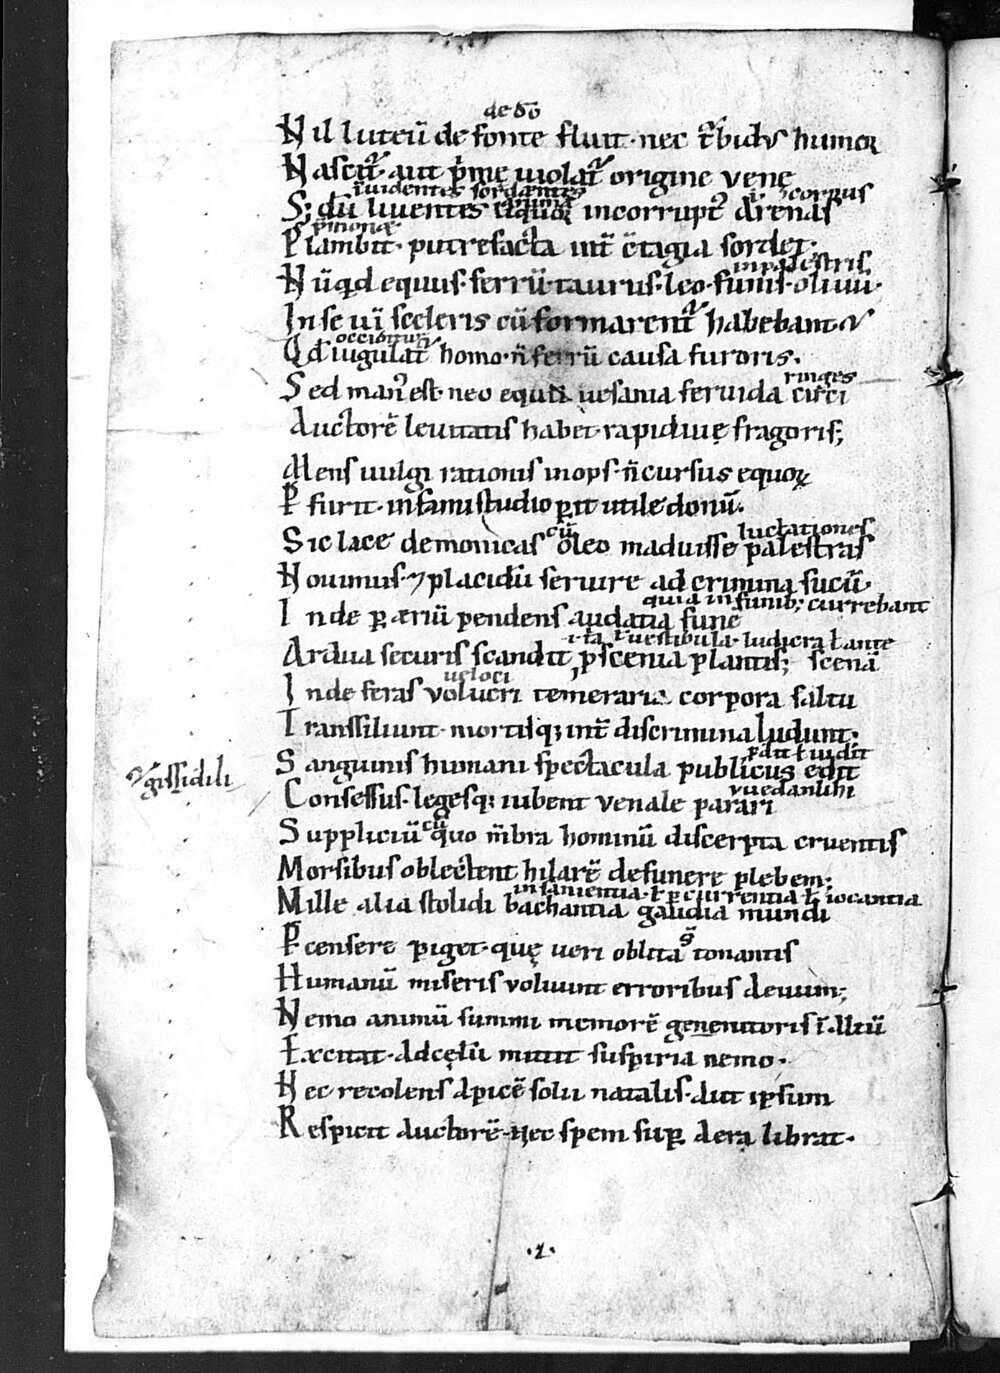 de dō
Nil luteū de fonte fluit · nec t᷑bidus humor
Nascit᷑ · aut p̄me uiolat᷑ origine venę
ł uidentes sordentes corpus
S; dū liuentes liquor incorrupt᷑ arenas
P lambit · putrefacta int̄ cōtagia sordet ·
in palestris
Nūqd equus · ferrū · taurus · leo · funis · oliuū ·
In se uī sceleris cū formarent᷑ habebant ·
occiditur
Qd iugulat᷑ homo · n̄ ferrū causa furoris ·
Sed man᷑ est · neo equū uesania feruida circi
ringes
Auctorē leuitatis habet · rapidiuę fragoris;
Mens uulgi rationis inops · n̄ cursus equoꝝ
P furit · infami studio ꝑit utile donū ·
cū luctationes
Sic lace demonicas oleo maduisse palestras
Nouimus · ⁊ placidū seruire ad crimina sucū ·
quia in funib; currebant
Inde ꝑ aeriū pendens audatia fune
ł uestibula · ludicra ł ante
Ardua securis scandit p̄scenia plantis; scenā
ueloci
Inde feras volucri temeraria corpora saltu
Transsiliunt · mortisq; int̄ discrimina ludunt ·
ꝑdit ł uidit
Sanguinis humani spectacula publicus edit
gissidili
Consessus · legesq; iubent venale parari
cū
Suppliciū quo m̄bra hominū discerpta cruentis
Morsibus oblectent hilarē defunere plebem;
insanientia · ł ꝑcurrentia ł iocantia
Mille alia stolidi bachantia gaudia mundi
Pcensere piget · quę ueri oblita tonantis
Humanū miseris voluunt erroribus deuum;
Nemo animū summi memorē genitoris ī altū
Excitat · ad cęlū mittit suspiria nemo ·
Nec recolens apicē solii natalis · aut ipsum
Respicit auctorē · nec spem suꝑ aera librat ·